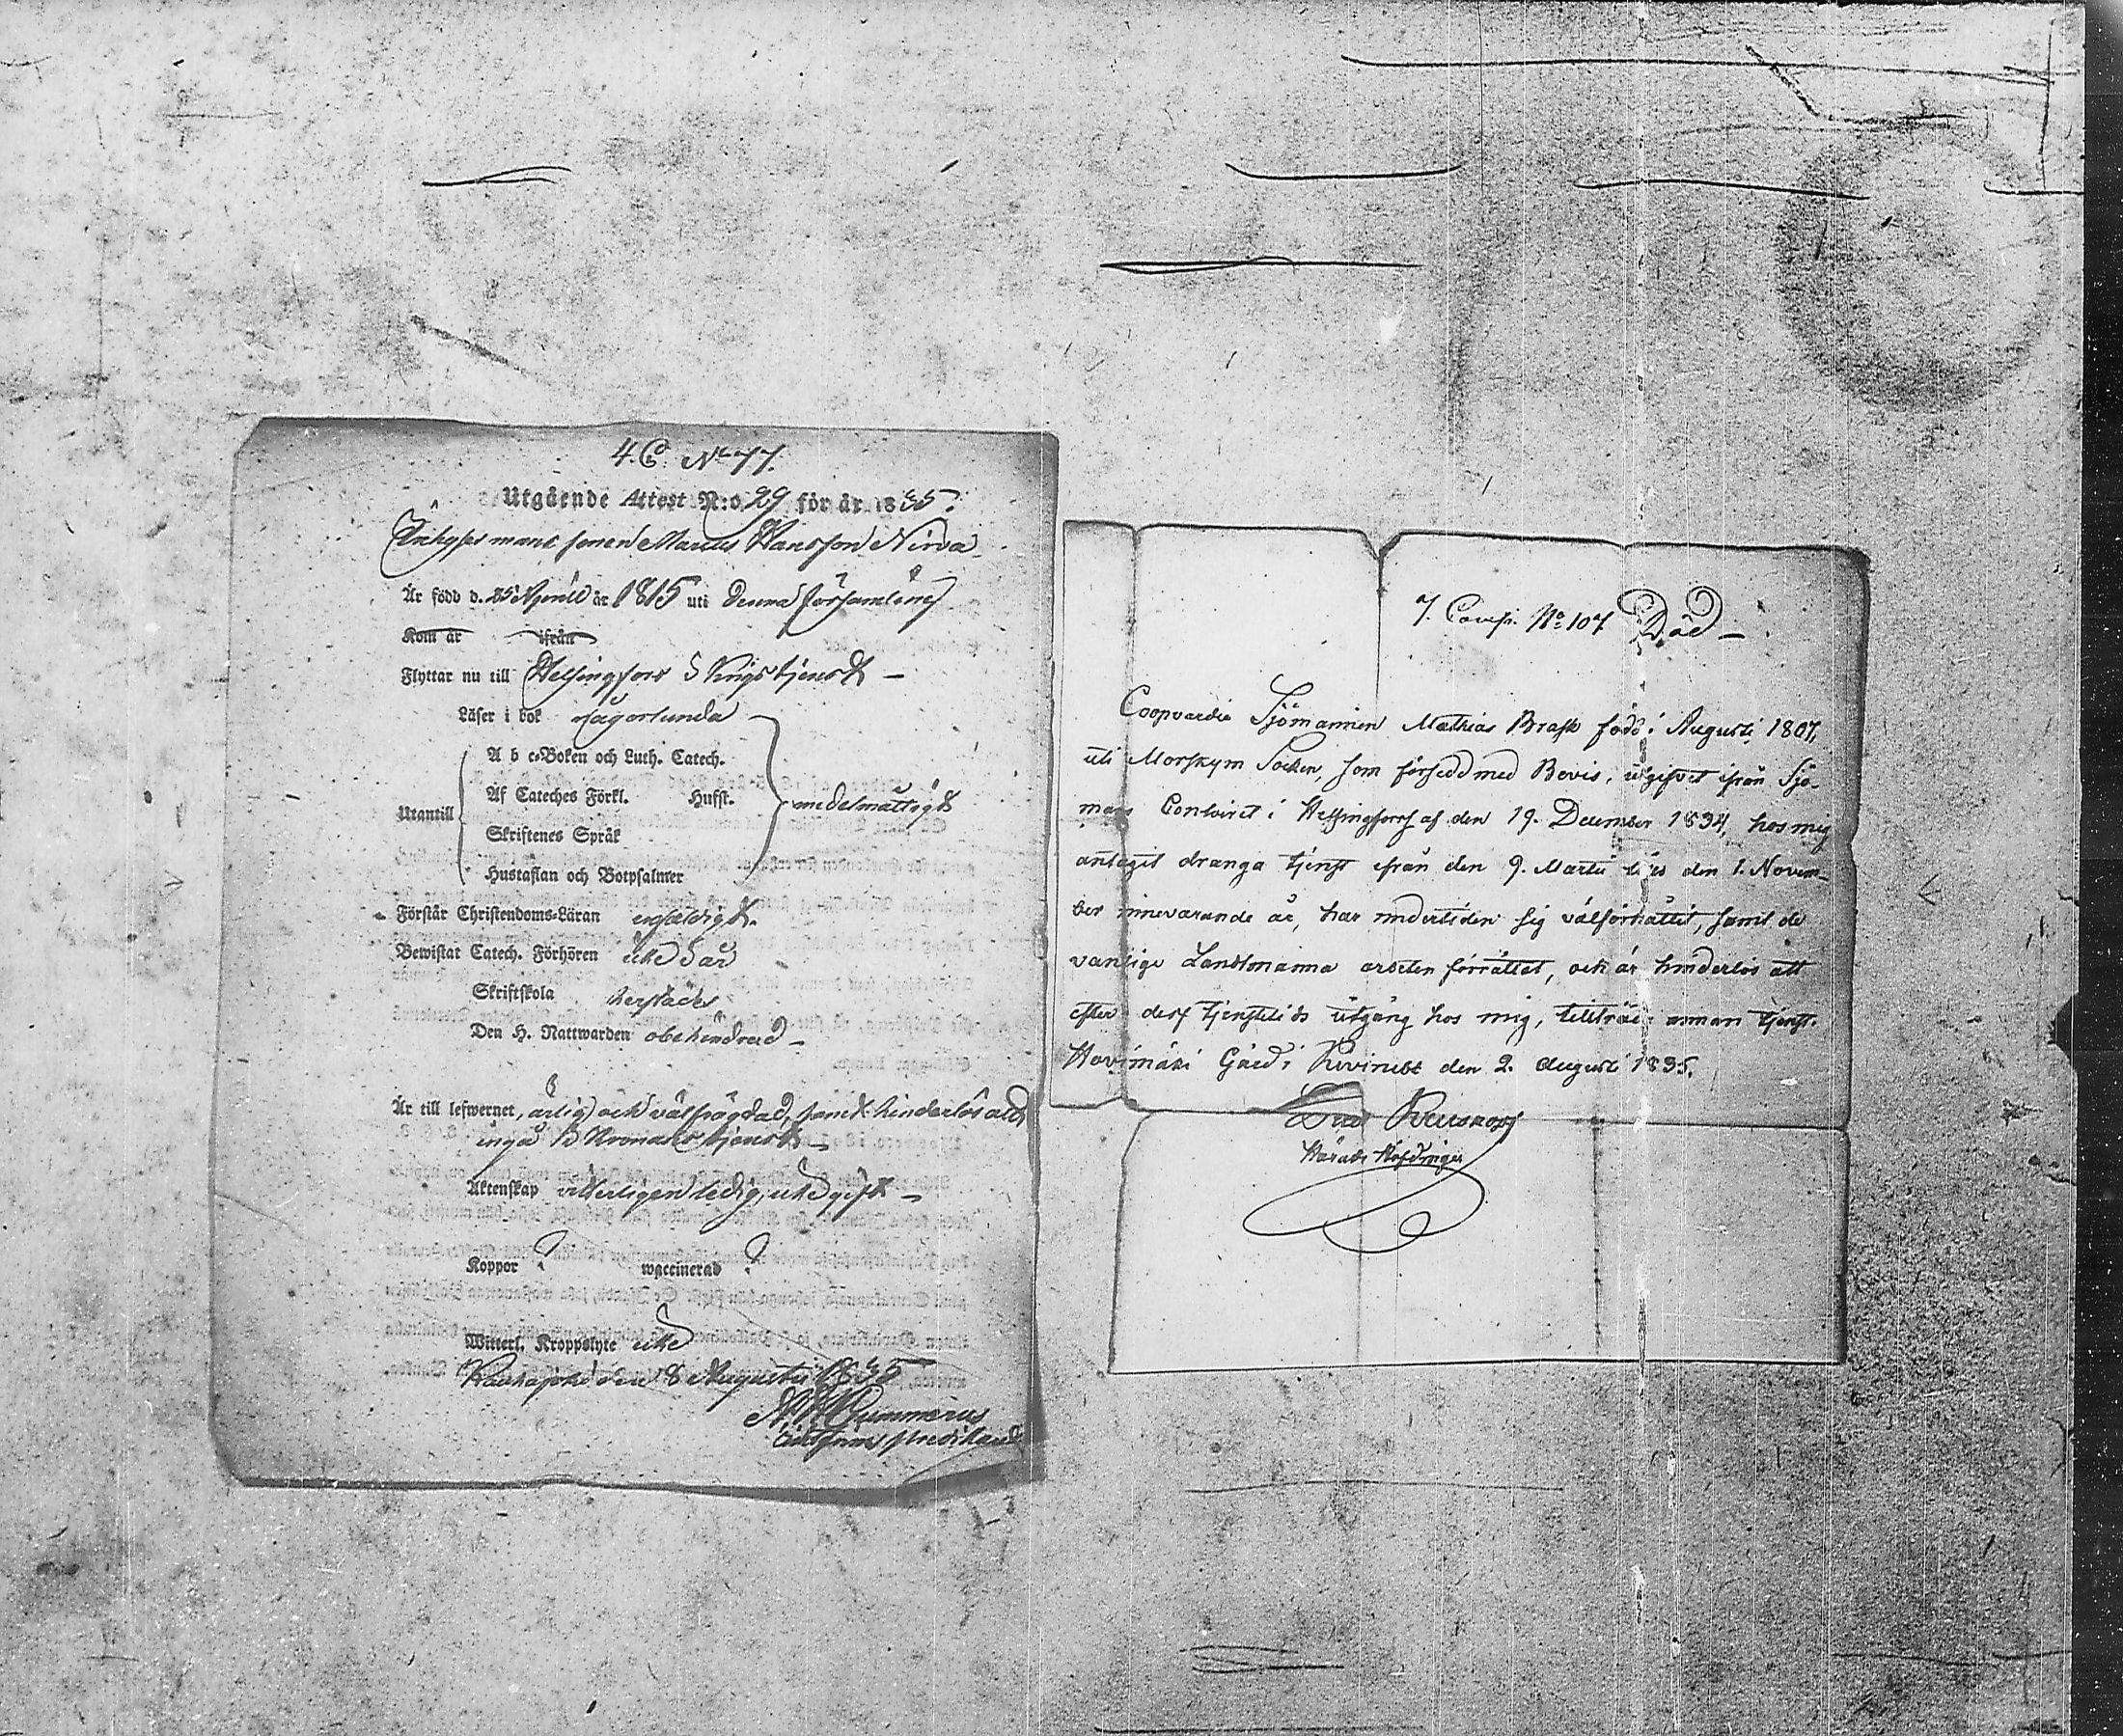 4. C. No 77.
Utgående Attest N:o 29 för år 1835.
Hansson Nirva
Är född d. 25 Aprill år 1815 uti denna församling
Kom år ifrån
Flyttar nu till Helsingfors i Krigstjenst —
Läser i bok någorlunda
A b c-Boken och Luth. Catech.
Af Cateches Förkl. Husf.
Utantill medelmåttigt
Skriftenes Språk
Hustaflan och Botpsalmer
Förstår Christendoms-Läran enfaldigt.
Bewistat Catech. Förhören icke i år
Skriftskola
Den H. Nattwarden obehindrad —
Är till lefwernet, ärlig och välfrägdad, samt hinderlös att
ingå i Kronans tjenst —
Äktenskap vitterligen ledig, icke gift —
Koppor ? waccinerad ?
Witterl. Kroppslyte icke
Kauhajoki den 8 Augusti 1835
Gummerus
7. Comp. No 107 Död —
Coopvardie Sjömannen Mathias Brask född i Augusti 1807,
uti Morskym Socken, som försedd med Bevis, utgifvet ifrån Sjö-
mans Contoiret i Helsingfors af den 19. December 1834, hos mig
antagit dränga tjenst ifrån den 9. Martii tils den 1. Novem-
ber innevarande år, har undertiden sig välförhållit, samt de
vanlige Landtmanna arbeten förrättat, och är hinderlös att
efter dess tjenstetids utgång hos mig, tillträda annan tjenst.
Hovimäki Gård i den 2. Augusti 1835.
Härads Höfdinge